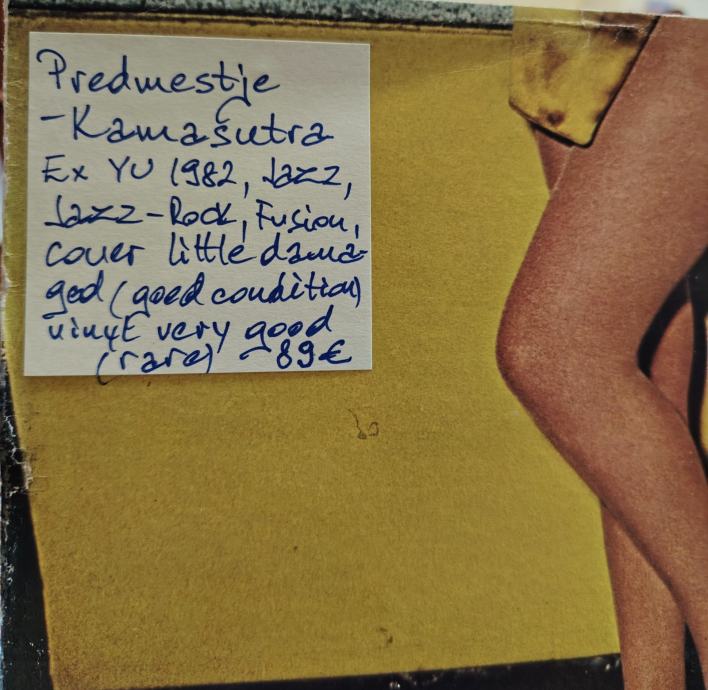 Predmestje
-Kamasutra
Ex YU 1982, Jazz,
Jazz-Rock, Fusion,
cover little dama-
ged (good condition)
vinyl very good
(rare) 89€